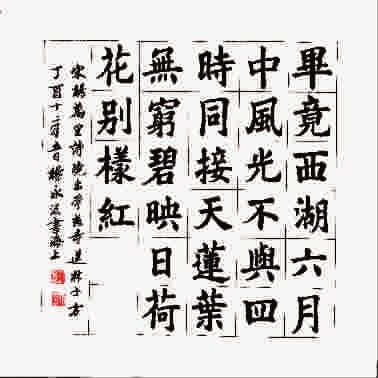 畢竟西湖六月
中風光不與四
時同接天蓮葉
無窮碧映日荷
花别樣紅
宋楊萬里詩曉出淨慈寺送林子方
丁酉十二月五日楊永法書海上